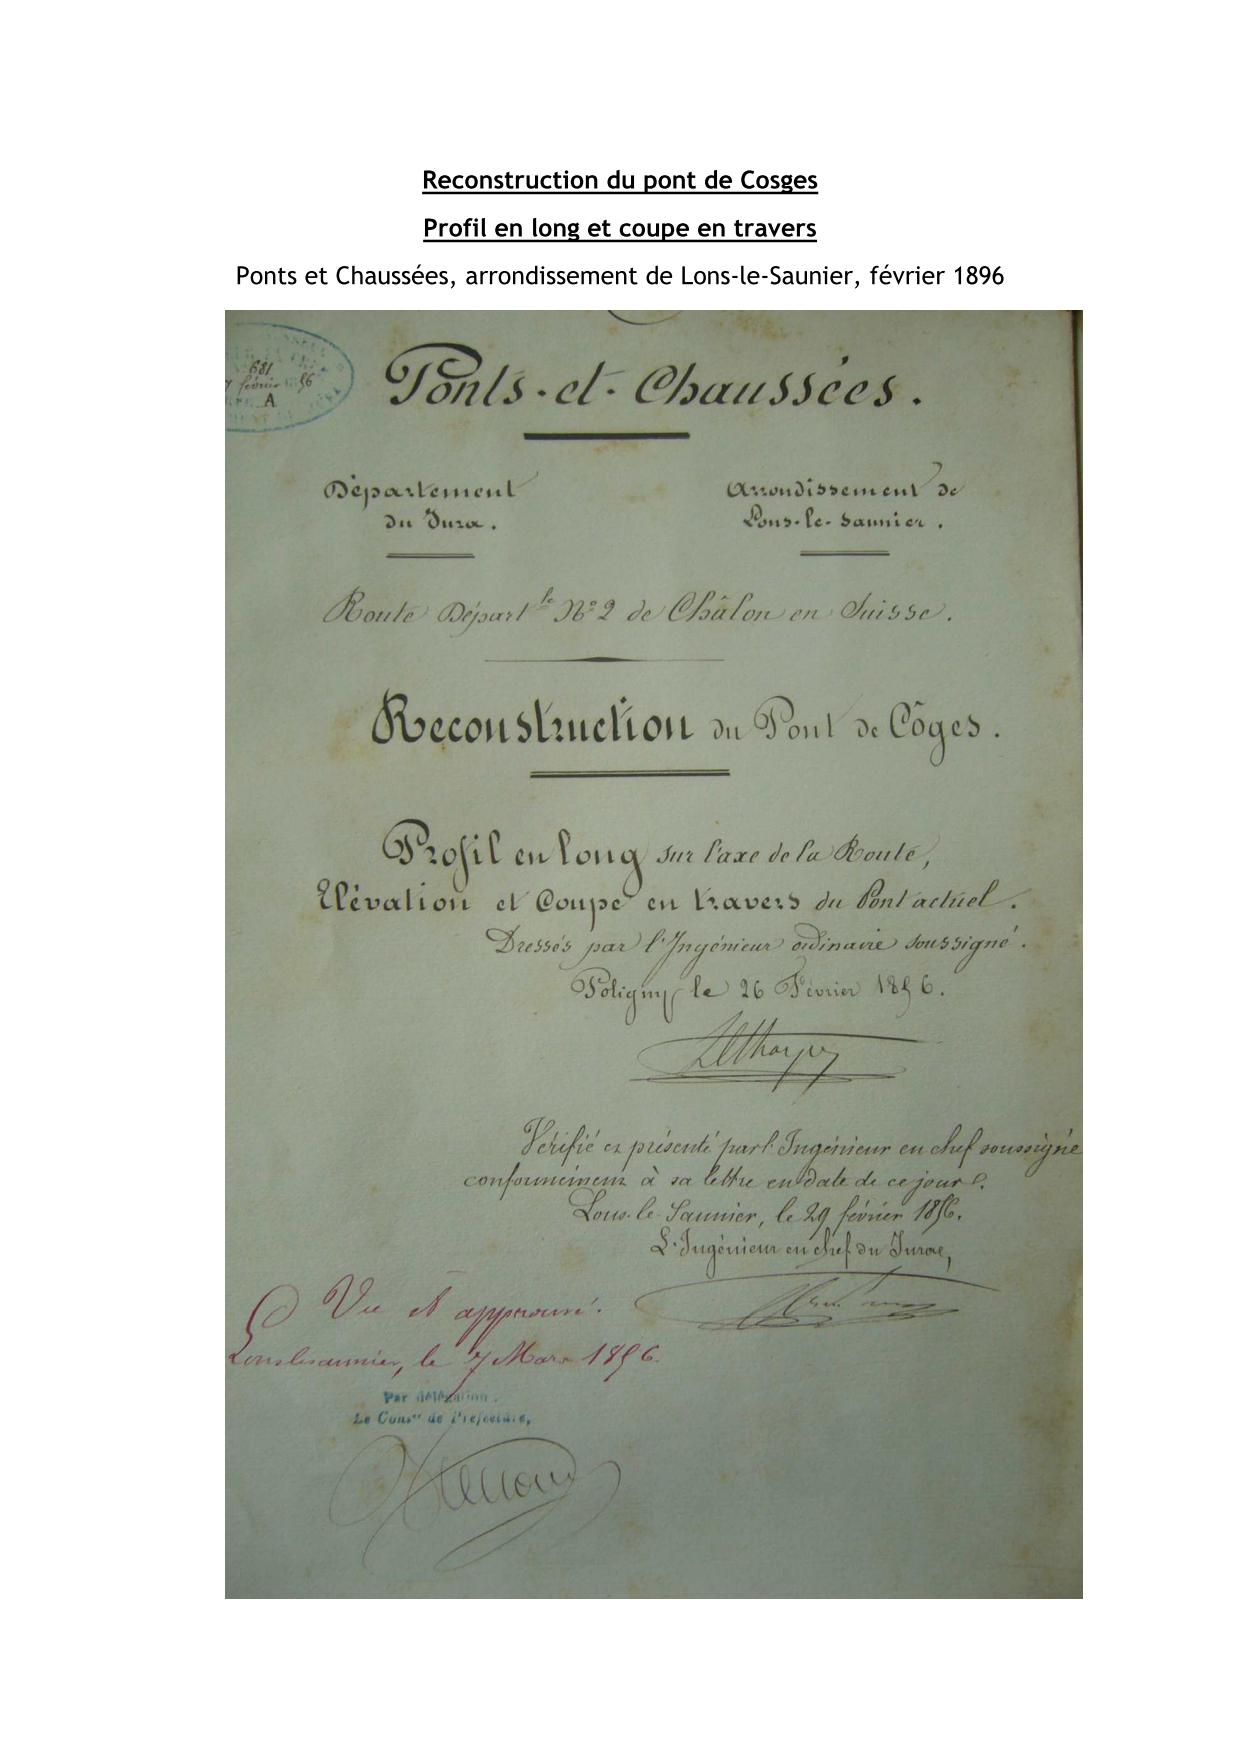 Reconstruction du pont de Cosges
Profil en long et coupe en travers
Ponts et Chaussées, arrondissement de Lons-le-Saunier, février 1896
681
février 56
A
Ponts-et-Chaussées.
Département
du Jura.
Arrondissement de
Lons-le-Saunier.
Route Départle No 2 de Châlon en Suisse.
Reconstruction du Pont de Côges.
Profil en long sur l'axe de la Route,
Elévation et Coupe en travers du Pont actuel.
Dressés par l'Ingénieur ordinaire soussigné.
Poligny le 26 Février 1856.
Vérifié et présenté par l'Ingénieur en chef soussigné
conformément à sa lettre en date de ce jour.
Lons-le-Saunier, le 29 février 1856.
L'Ingénieur en chef du Jura,
Vu et approuvé.
Lonslesaunier, le 7 Mars 1856.
Par délégation.
Le Conser de Préfecture,